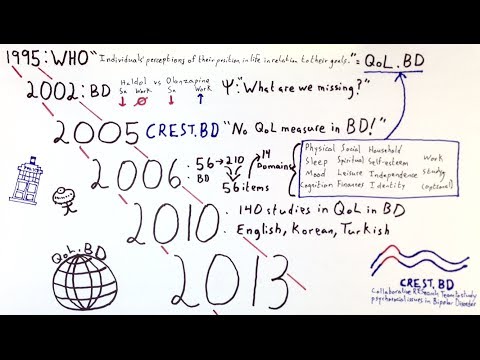 1995: WHO "Individuals' perceptions of their position in life in relation to their goals." = QoL.BD
2002: BD Haldol vs Olanzapine Ψ: "What are we missing?"
Sx Work Sx Work
2005 CREST.BD "No QoL measure in BD!"
2006 . 56 → 210 14
BD Domains
56 items
Physical Social Household
Sleep Spiritual Self-esteem Work
Mood Leisure Independence Study
Cognition Finances Identity (optional)
2010 . 140 studies in QoL in BD
English, Korean, Turkish
QoL.BD
2013
CREST.BD
Collaborative RESearch Team to study
psychosocial issues in Bipolar Disorder